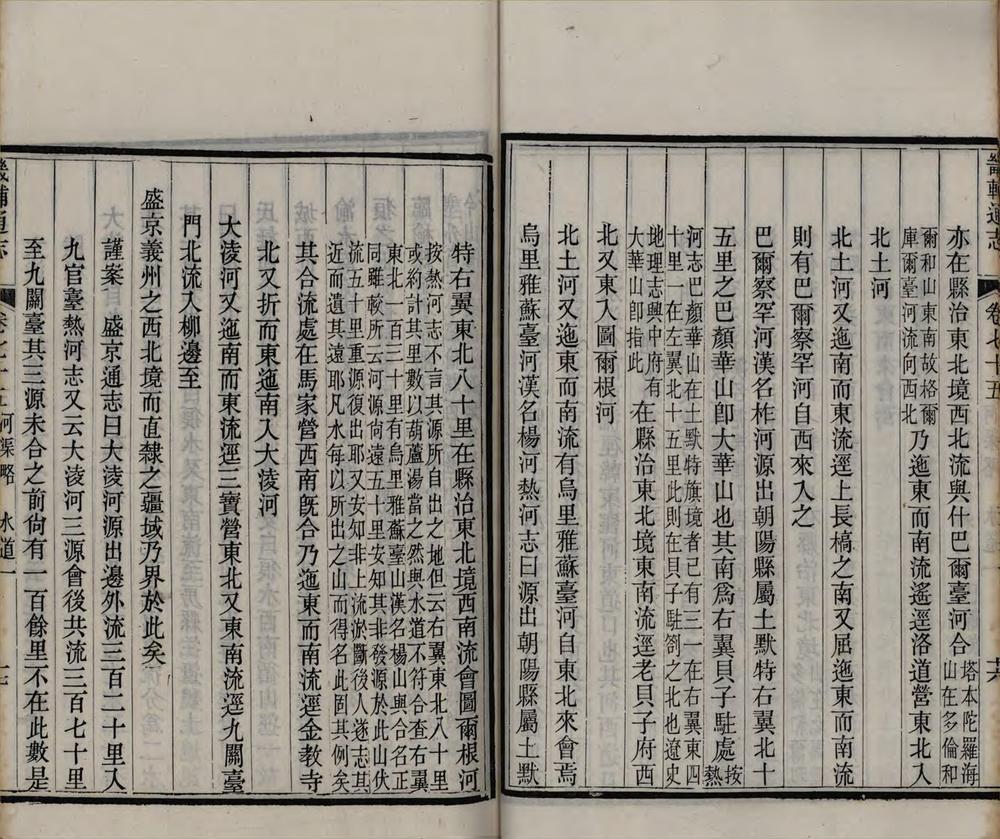 畿輔通志
卷七十五
亦在縣治東北境西北流與什巴爾臺河合塔本陀羅海
山在多倫和
爾和山東南故格爾
庫爾臺河流向西北乃迤東而南流遙逕洛道營東北入
北土河
北土河又迤南而東流逕上長槁之南又屈迤東而南流
則有巴爾察罕河自西來入之
巴爾察罕河漢名柞河源出朝陽縣屬土默特右翼北十
五里之巴顏華山卽大華山也其南爲右翼貝子駐處按
熱
河志巴顏華山在土默特旗境者已有三一在右翼東四
十里一在左翼北十五里此則在貝子駐劄之北也遼史
地理志興中府有
大華山卽指此在縣治東北境東南流逕老貝子府西
北又東入圖爾根河
北土河又迤東而南流有烏里雅蘇臺河自東北來會焉
烏里雅蘇臺河漢名楊河熱河志曰源出朝陽縣屬土默
特右翼東北八十里在縣治東北境西南流會圖爾根河
按熱河志不言其源所自出之地但云右翼東北八十里
或約計其里數以葫蘆湯當之然與水道不符合查右翼
東北一百三十里有烏里雅蘇臺山漢名楊山與合名正
同雖較所云河源尙遠五十里安知其非發源於此山伏
流五十里重源復出耶又安知非上流淤斷後人遂志其
近而遺其遠耶凡水每以所出之山而得名此固其例矣
其合流處在馬家營西南旣合乃迤東而南流逕金教寺
北又折而東迤南入大淩河
大淩河又迤南而東流逕三寶營東北又東南流逕九關臺
門北流入柳邊至
盛京義州之西北境而直隸之疆域乃界於此矣
謹案 盛京通志曰大淩河源出邊外流三百二十里入
九官臺熱河志又云大淩河三源會後共流三百七十里
至九關臺其三源未合之前尙有一百餘里不在此數是
畿輔通志
卷七十五 河渠略 水道一